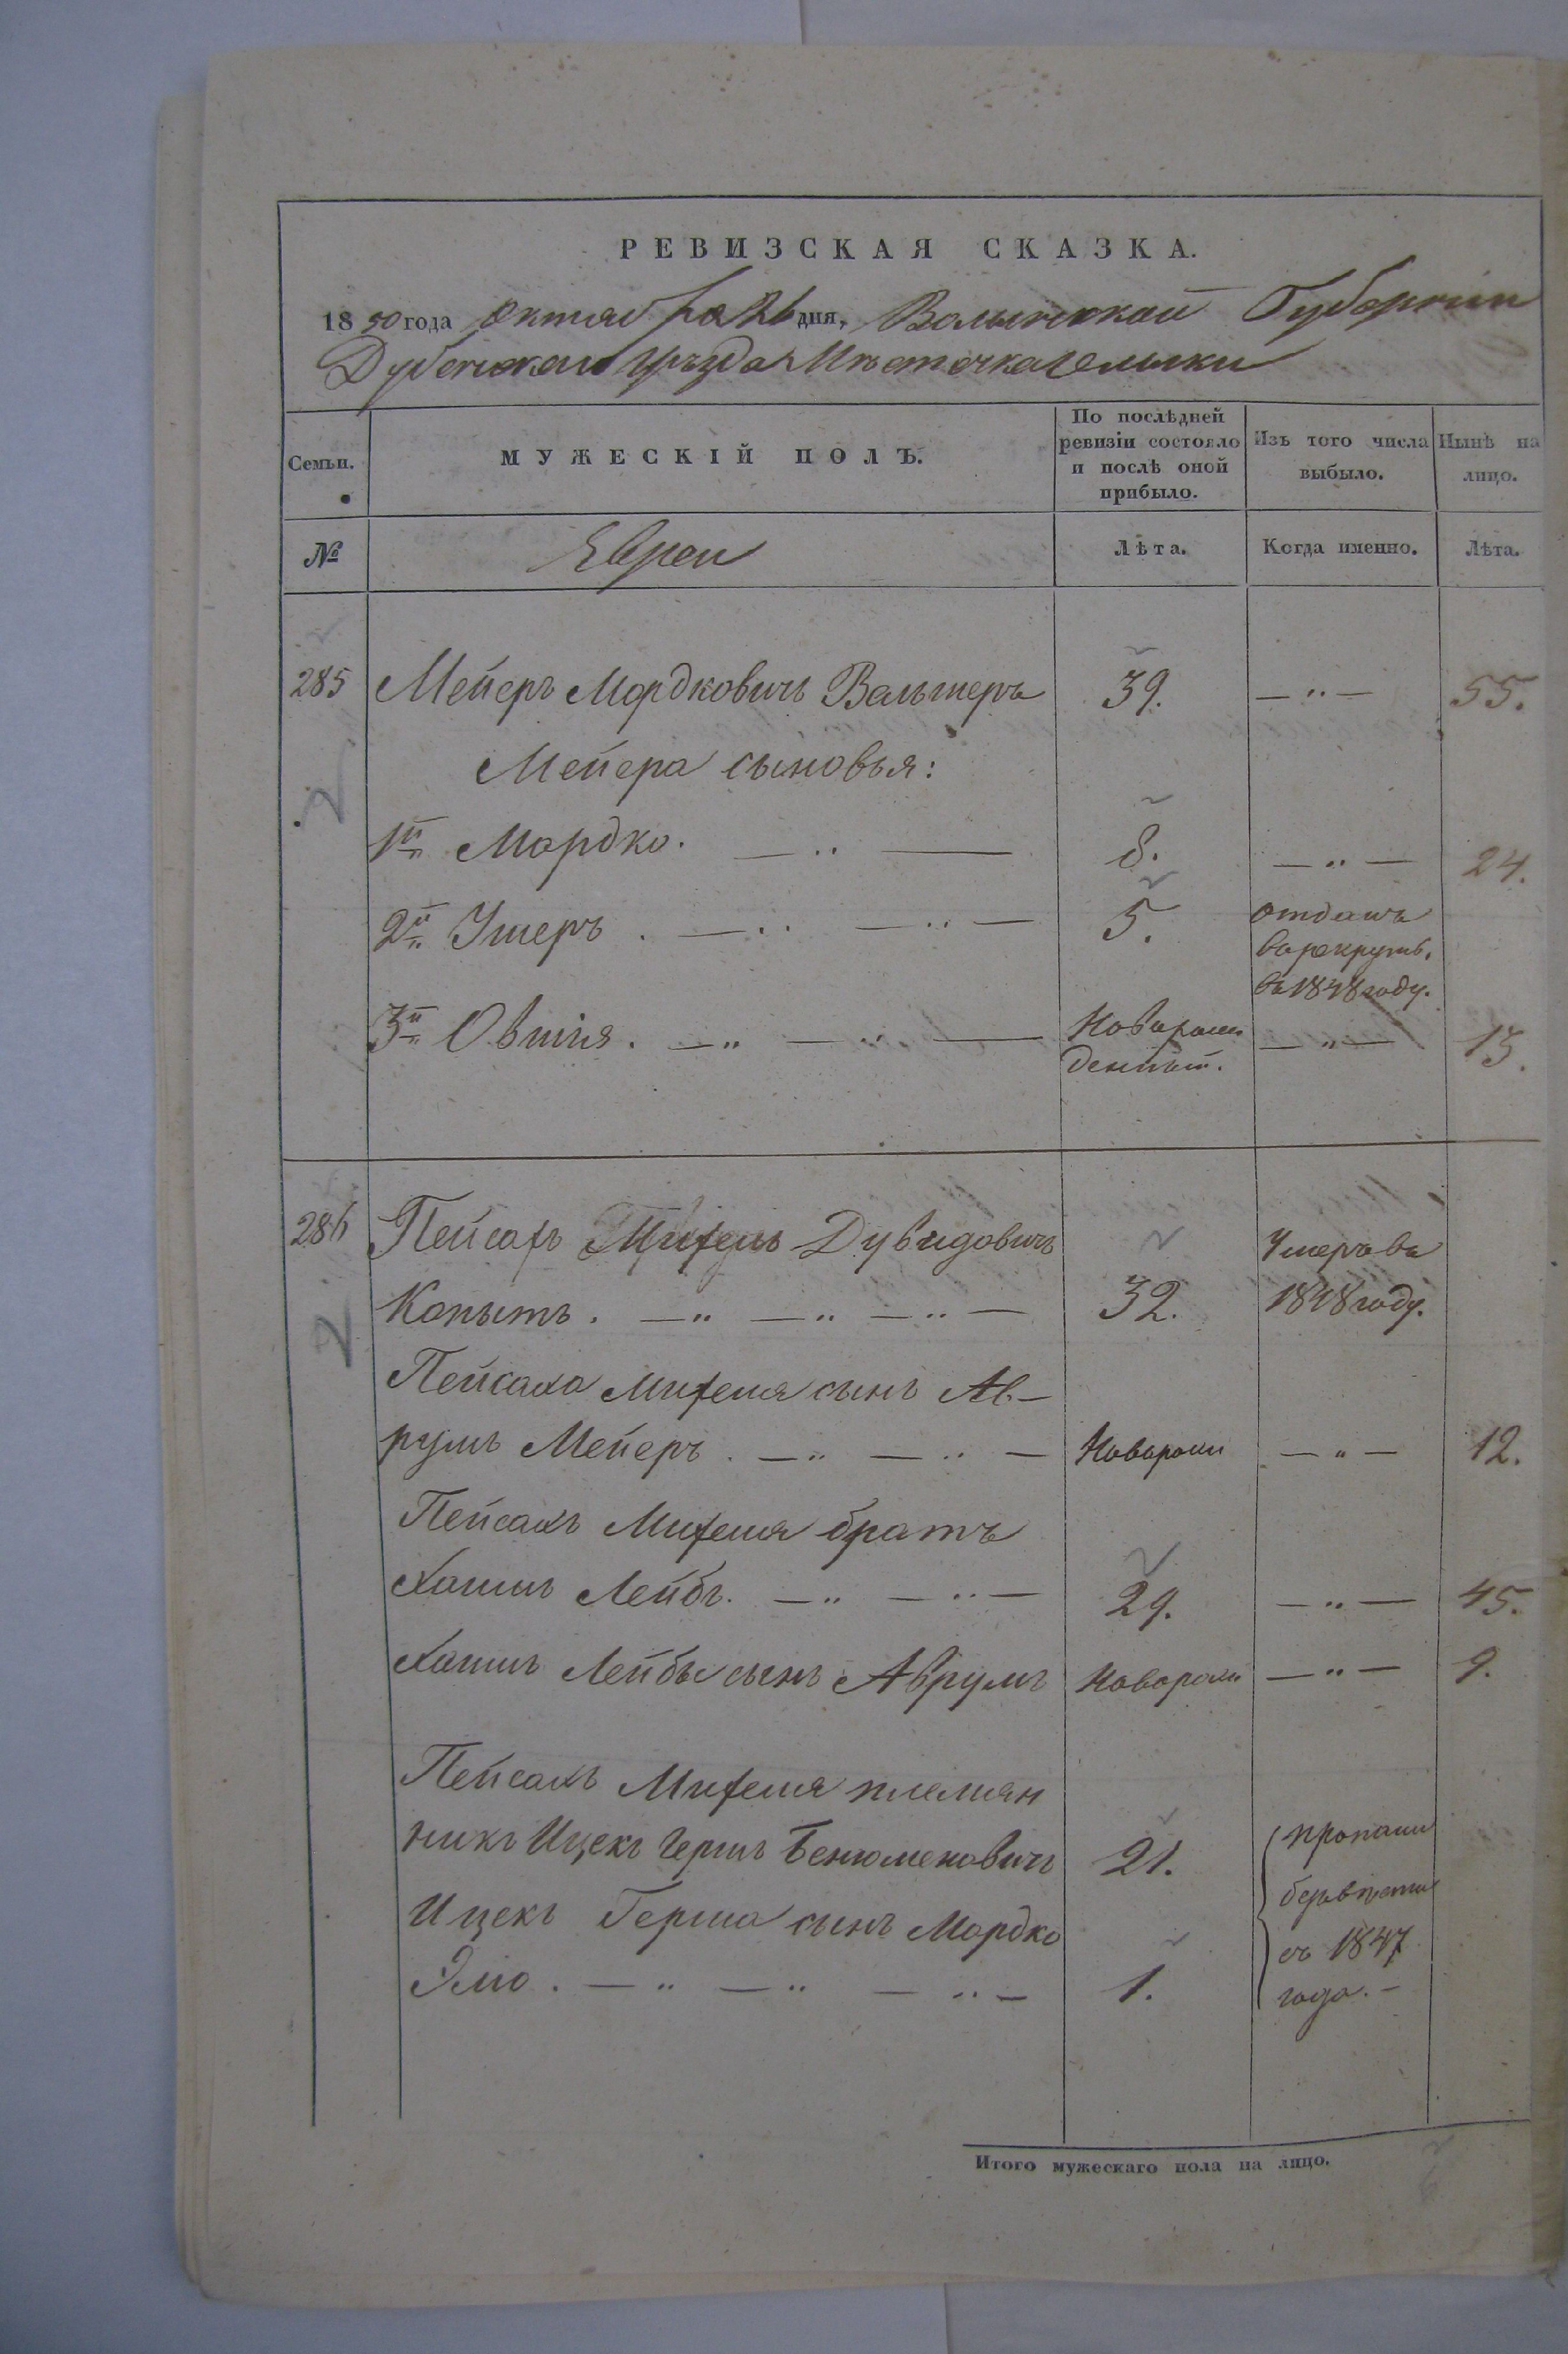 РЕВИЗСКАЯ СКАЗКА.
1850 года октября 26 дня, Волынской Губернии
Дубенского Уѣзда Мѣстечка Олыки
Семьи. МУЖЕСКІЙ ПОЛЪ. По послѣдней ревизіи состояло и послѣ оной прибыло. Изъ того числа выбыло. Нынѣ на лицо.
№ Евреи Лѣта. Когда именно. Лѣта.
285 Мейеръ Мордковичъ Вальтеръ 39. 55.
Мейера сыновья:
1й Мордко. 8. 24.
2й Ушеръ. 5. отданъ
в рекруты.
въ 1848 году.
3й Овшія. Новорож
денный. 13.
286 Пейсахъ Михель Дувидовичъ Умеръ въ
Копытъ. 32. 1848 году.
Пейсаха Михеля сынъ Ав-
румъ Мейеръ. Новорож 12.
Пейсахъ Михеля братъ
Хаимъ Лейбъ. 29. 45.
Хаимъ Лейбы сынъ Аврумъ Новорож 9.
Пейсахъ Михеля племян
никъ Ицекъ Гершъ Бенюменовичъ 21. пропали
Ицекъ Герша сынъ Мордко безвѣсти
съ 1847
Эліо. 1. года.
Итого мужескаго пола на лицо.